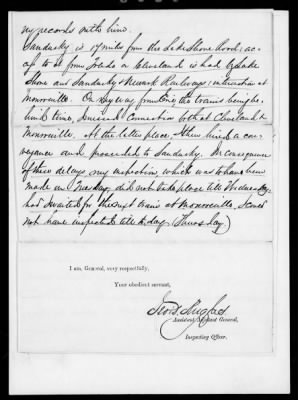 my records with him.
Sandusky is 17 miles from the Lake Shore Road; ac-
cess to it from Toledo or Cleveland is had by Lake
Shore and Sandusky & Newark Railways; intersection at
Monroeville. On my way from Erie the trains being be-
hind time, I missed connection both at Cleveland &
Monroeville. At the latter place, I then hired a con-
veyance and proceeded to Sandusky. In consequence
of these delays my inspection, which was to have been
made on Tuesday, did not take place till Wednesday
had I waited for the next train at Monroeville, I could
not have inspected till to-day (Thursday)
I am, General, very respectfully,
Your obedient servant,
Assistant Adjutant General,
Inspecting Officer.